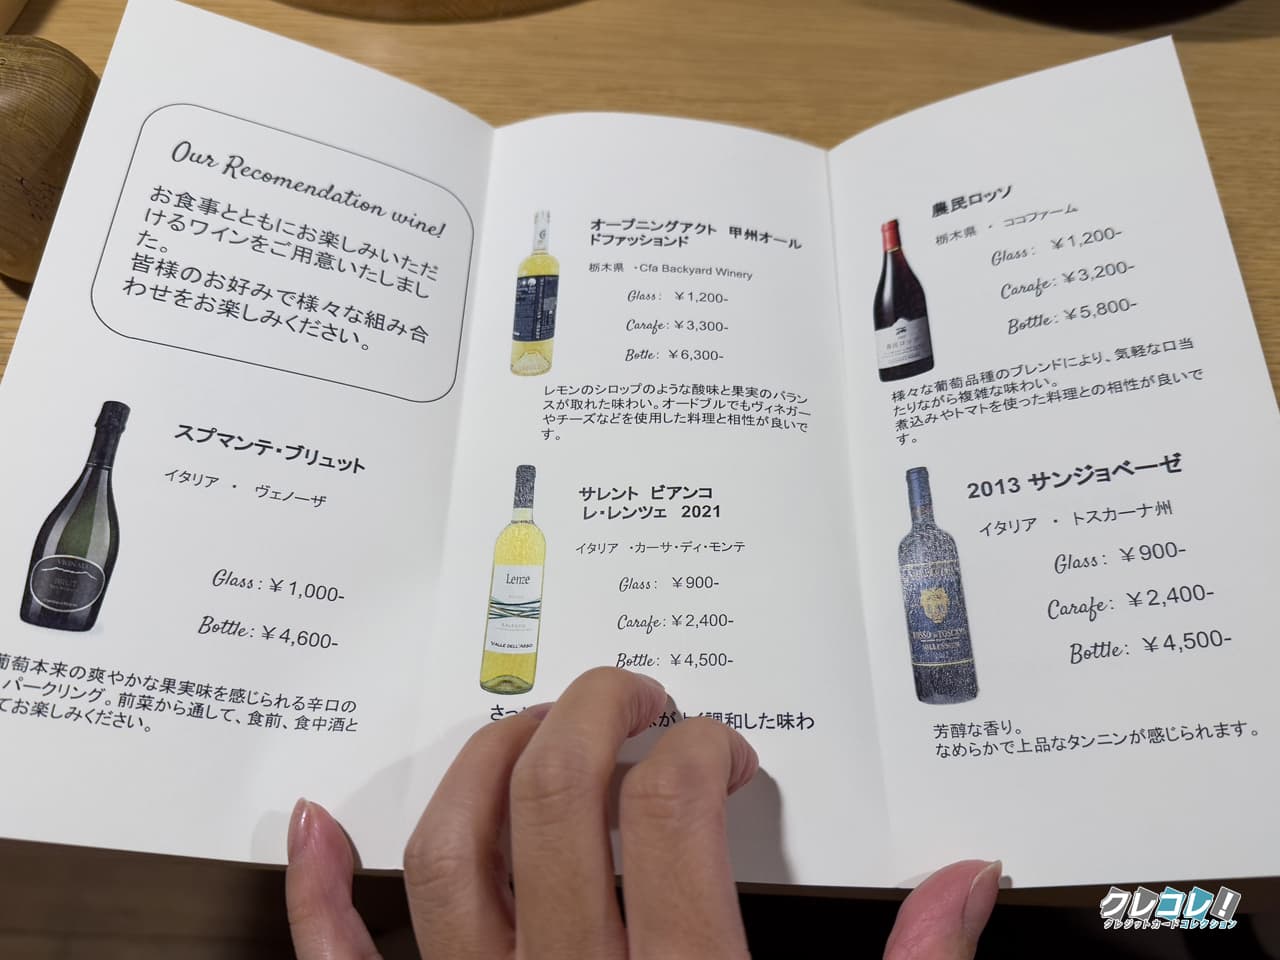 Our Recomendation wine!
お食事とともにお楽しみいただ
けるワインをご用意いたしまし
た。
皆様のお好みで様々な組み合
わせをお楽しみください。
スプマンテ・ブリュット
イタリア ・ ヴェノーザ
Glass: ￥1,000-
Bottle: ￥4,600-
葡萄本来の爽やかな果実味を感じられる辛口の
パークリング。前菜から通して、食前、食中酒と
てお楽しみください。
BRUT
オープニングアクト 甲州オール
ドファッションド
栃木県 ・Cfa Backyard Winery
Glass: ￥1,200-
Carafe: ￥3,300-
Botle: ￥6,300-
レモンのシロップのような酸味と果実のバラン
スが取れた味わい。オードブルでもヴィネガー
やチーズなどを使用した料理と相性が良いで
す。
サレント ビアンコ
レ・レンツェ 2021
イタリア ・カーサ・ディ・モンテ
Glass: ￥900-
Carafe: ￥2,400-
Bottle: ￥4,500-
Lenze
SALENTO
VALLE DELL'ASSO
さっ
がよく調和した味わ
農民ロッソ
栃木県 ・ ココファーム
Glass: ￥1,200-
Carafe: ￥3,200-
Bottle: ￥5,800-
農民ロッソ
様々な葡萄品種のブレンドにより、気軽な口当
たりながら複雑な味わい。
煮込みやトマトを使った料理との相性が良いで
す。
2013 サンジョベーゼ
イタリア ・ トスカーナ州
Glass: ￥900-
Carafe: ￥2,400-
Bottle: ￥4,500-
ROSSO di TOSCANA
芳醇な香り。
なめらかで上品なタンニンが感じられます。
クレコレ!
クレジットカードコレクション